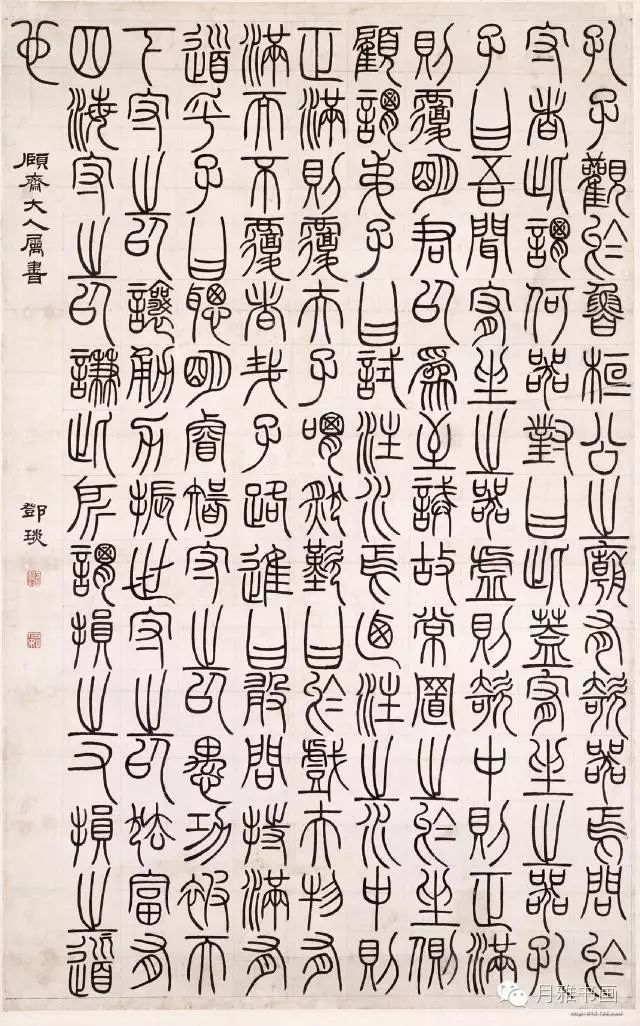 孔子觀於魯桓公之廟有欹器焉問於
守者此謂何器對曰此蓋宥坐之器孔
子曰吾聞宥坐之器虛則欹中則正滿
則覆明君以為至誡故常置之於坐側
顧謂弟子曰試注水焉迺注之水中則
正滿則覆夫子喟然歎曰於戲夫物有
滿而不覆者哉子路進曰敢問持滿有
道乎子曰聰明睿智守之以愚功被天
下守之以讓勇力振世守之以怯富有
四海守之以謙此所謂損之又損之道
也
頤齋大人屬書
鄧琰
月雅书画